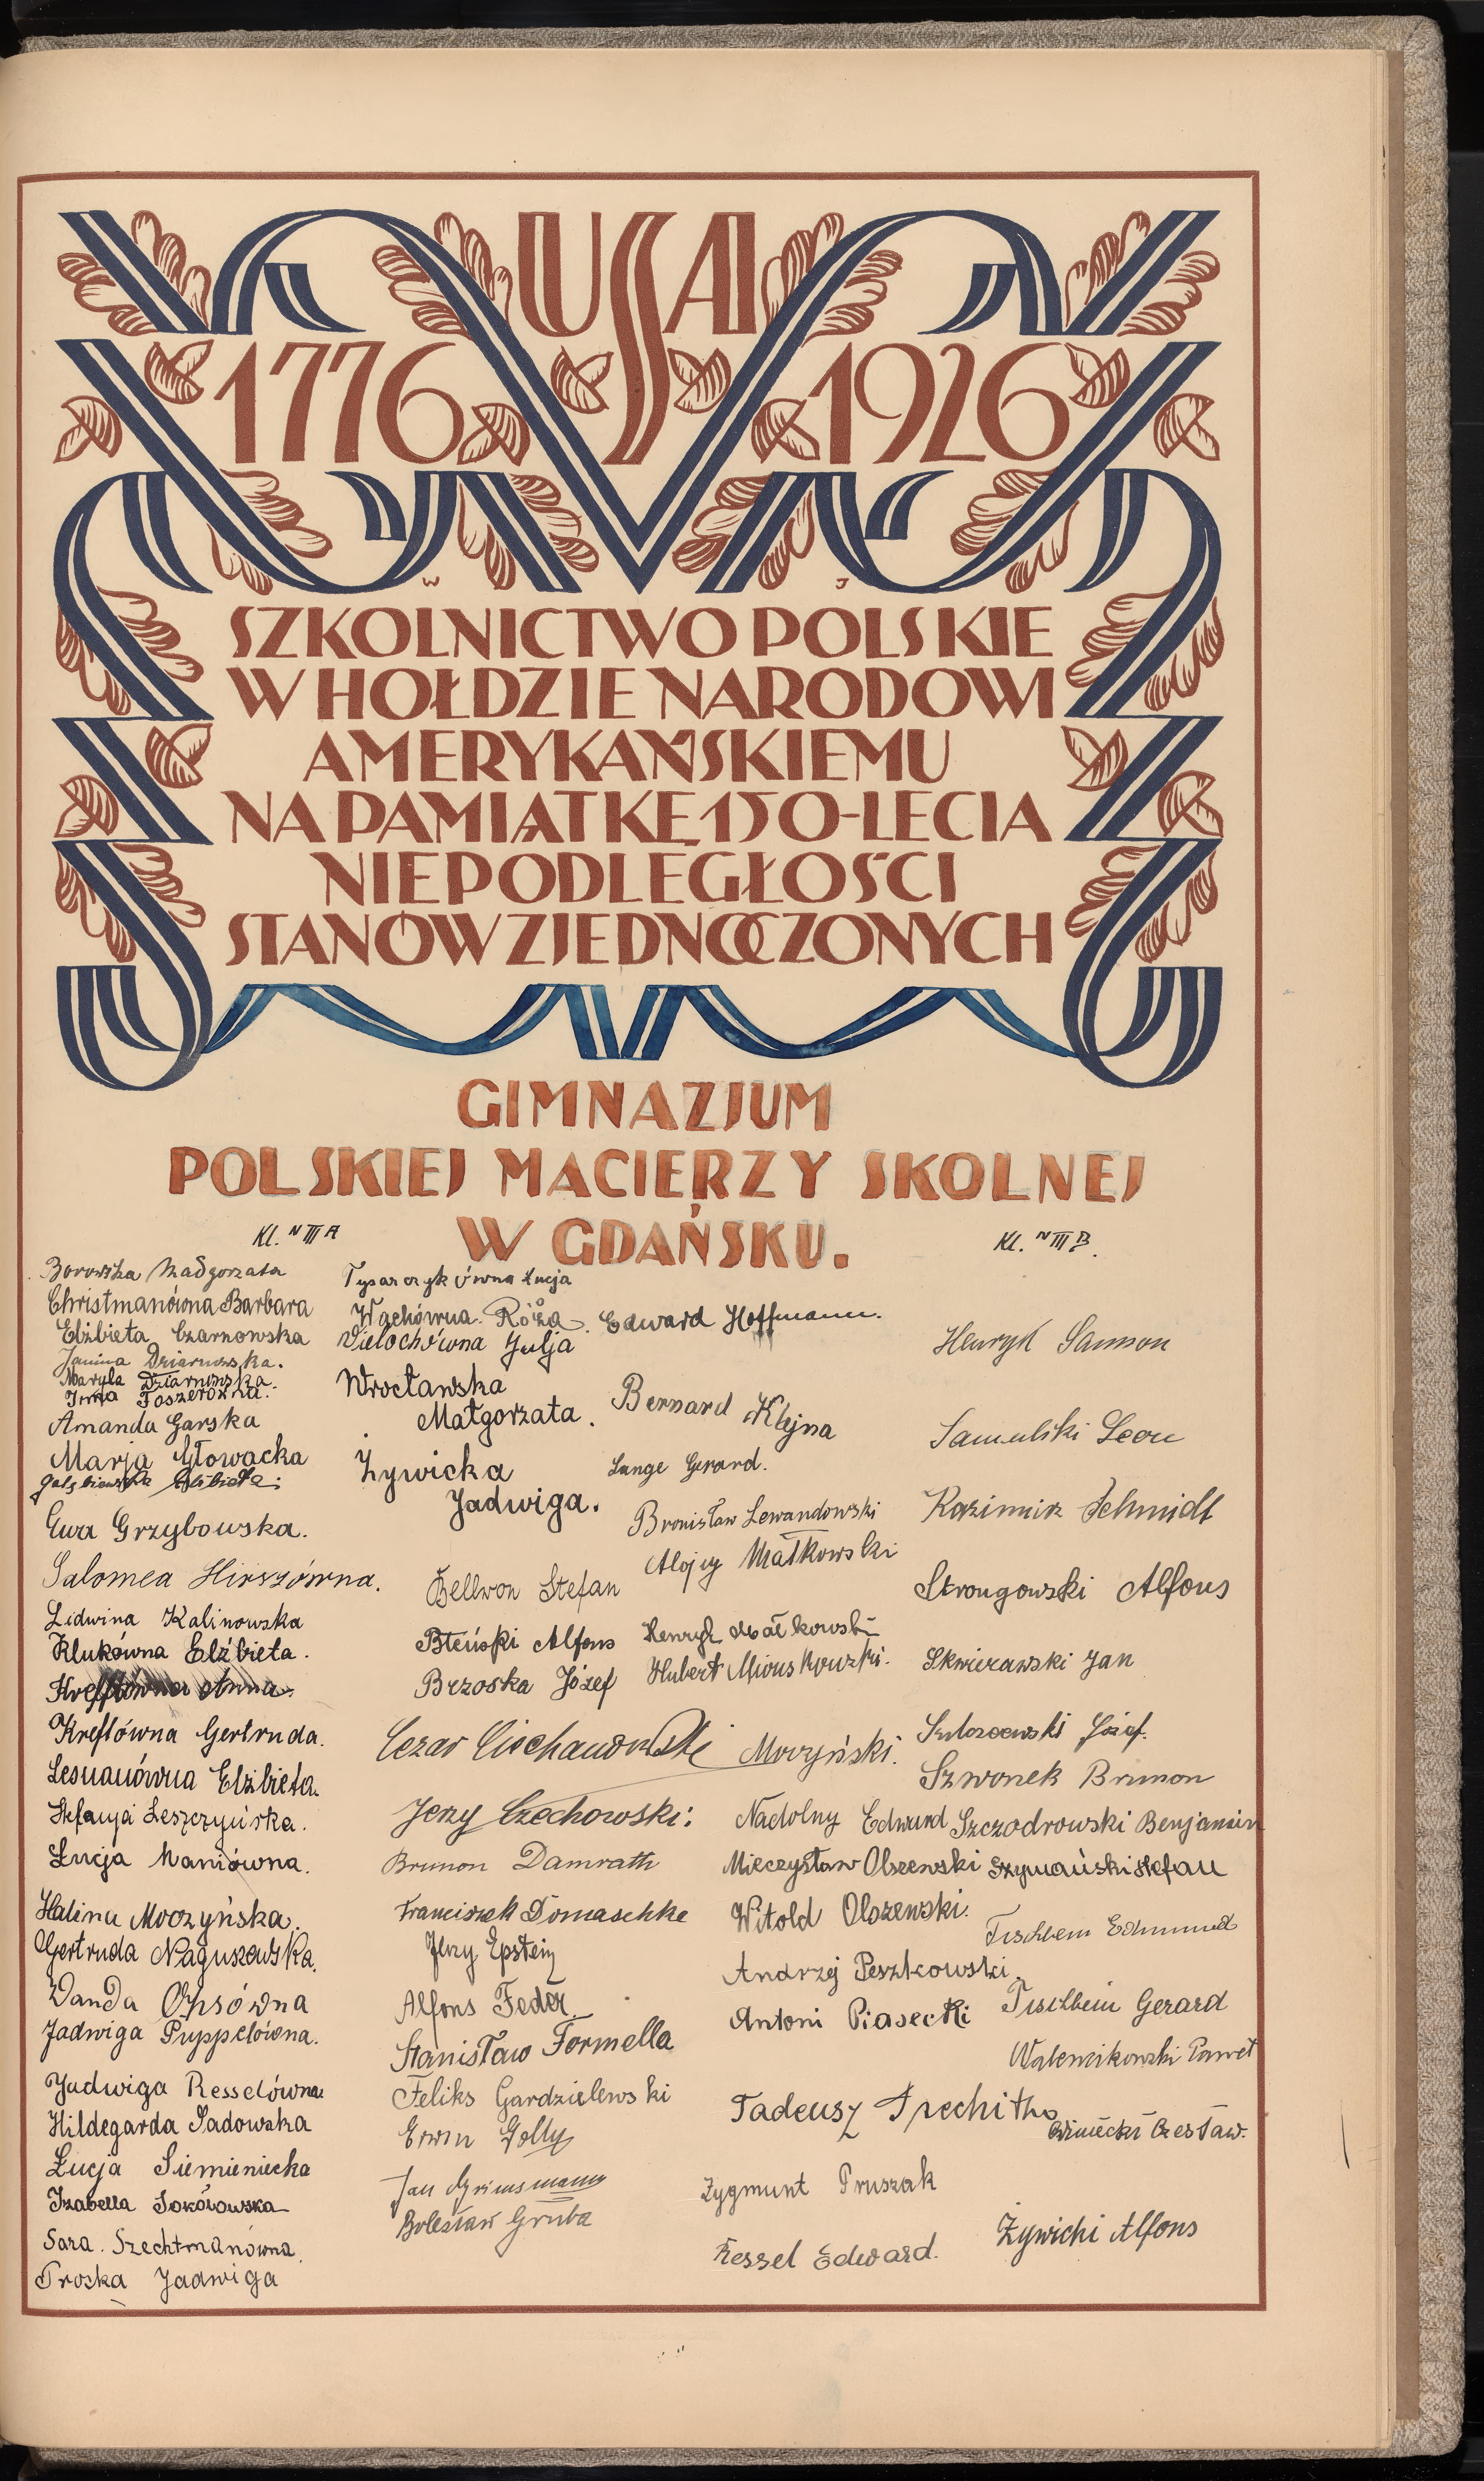 USA
1776 1926
W J
SZKOLNICTWO POLSKIE
W HOŁDZIE NARODOWI
AMERYKAŃSKIEMU
NA PAMIĄTKĘ 150-LECIA
NIEPODLEGŁOŚCI
STANÓW ZJEDNOCZONYCH
GIMNAZJUM
POLSKIEJ MACIERZY SKOLNEJ
W GDAŃSKU.
Kl. N III A
Borowska Małgorzata
Christmanówna Barbara
Elżbieta Czarnowska
Janina Dziarnowska.
Maryla Dziarnowska.
Irma Foszerówna.
Amanda Garska
Marja Głowacka
Elżbieta
Ewa Grzybowska.
Salomea Hirszówna.
Lidwina Kalinowska
Klukówna Elżbieta.
Krefftówna Anna
Kreftówna Gertruda.
Lesnauówna Elżbieta.
Stefanja Leszczyńska.
Łucja Maniówna.
Halina Moczyńska.
Gertruda Naguszewska.
Wanda Opsówna
Jadwiga Puppelówna.
Jadwiga Resselówna
Hildegarda Sadowska
Łucja Siemieniecka
Izabella Sokołowska
Sara Szechtmanówna.
Troska Jadwiga
Tysarczykówna Łucja
Wachówna Róża.
Wielochówna Julja
Wrocławska
Małgorzata.
Żywicka
Jadwiga.
Kl. N III B.
Bellwon Stefan
Bleński Alfons
Brzoska Józef
Cezar Ciechanowski
Jerzy Czechowski.
Brunon Damrath
Franciszek Domaschke
Jerzy Epstein
Alfons Feder
Stanisław Formella
Feliks Gardzielewski
Erwin Golly
Jan Grimsmann
Bolesław Gruba
Edward Hoffmann.
Bernard Klejna
Lange Gerard.
Bronisław Lewandowski
Alojzy Małkowski
Henryk Małkowski
Hubert Mionskowski.
Moczyński.
Nadolny Edward
Mieczysław Olszewski
Witold Olszewski.
Andrzej Peszkowski.
Antoni Piasecki
Tadeusz Prechitko
Zygmunt Pruszak
Ressel Edward.
Henryk Samson
Samulski Leon
Kazimierz Schmidt
Strongowski Alfons
Skwierawski Jan
Józef.
Szwonek Brunon
Szczodrowski Benjamin
Szymański Stefan
Tischbein Edmund
Tischbein Gerard
Walencikowski Paweł
Winiecki Czesław.
Żywicki Alfons